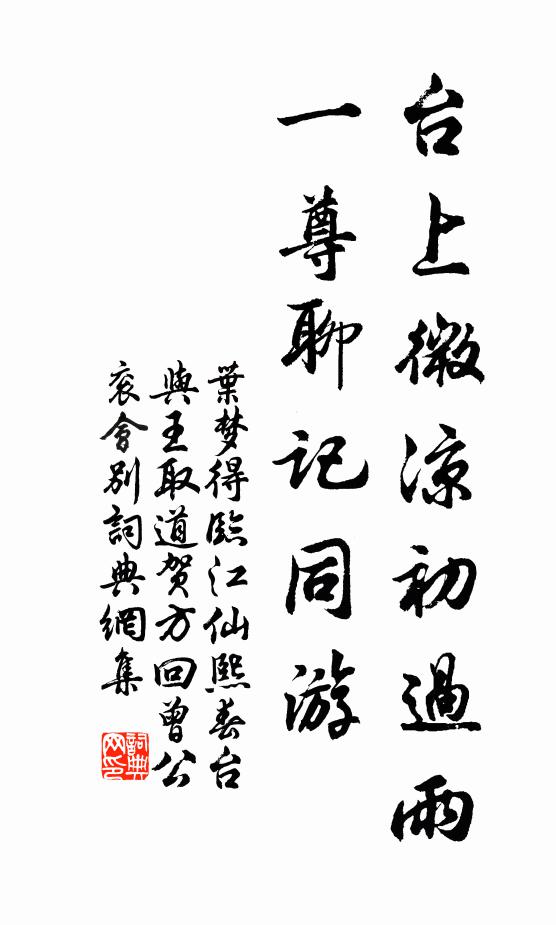 台上微涼初過雨
一尊聊記同游
葉梦得臨江仙熙春台
與王取道贺方回曾公
衮會别詞典網集
詞典网印